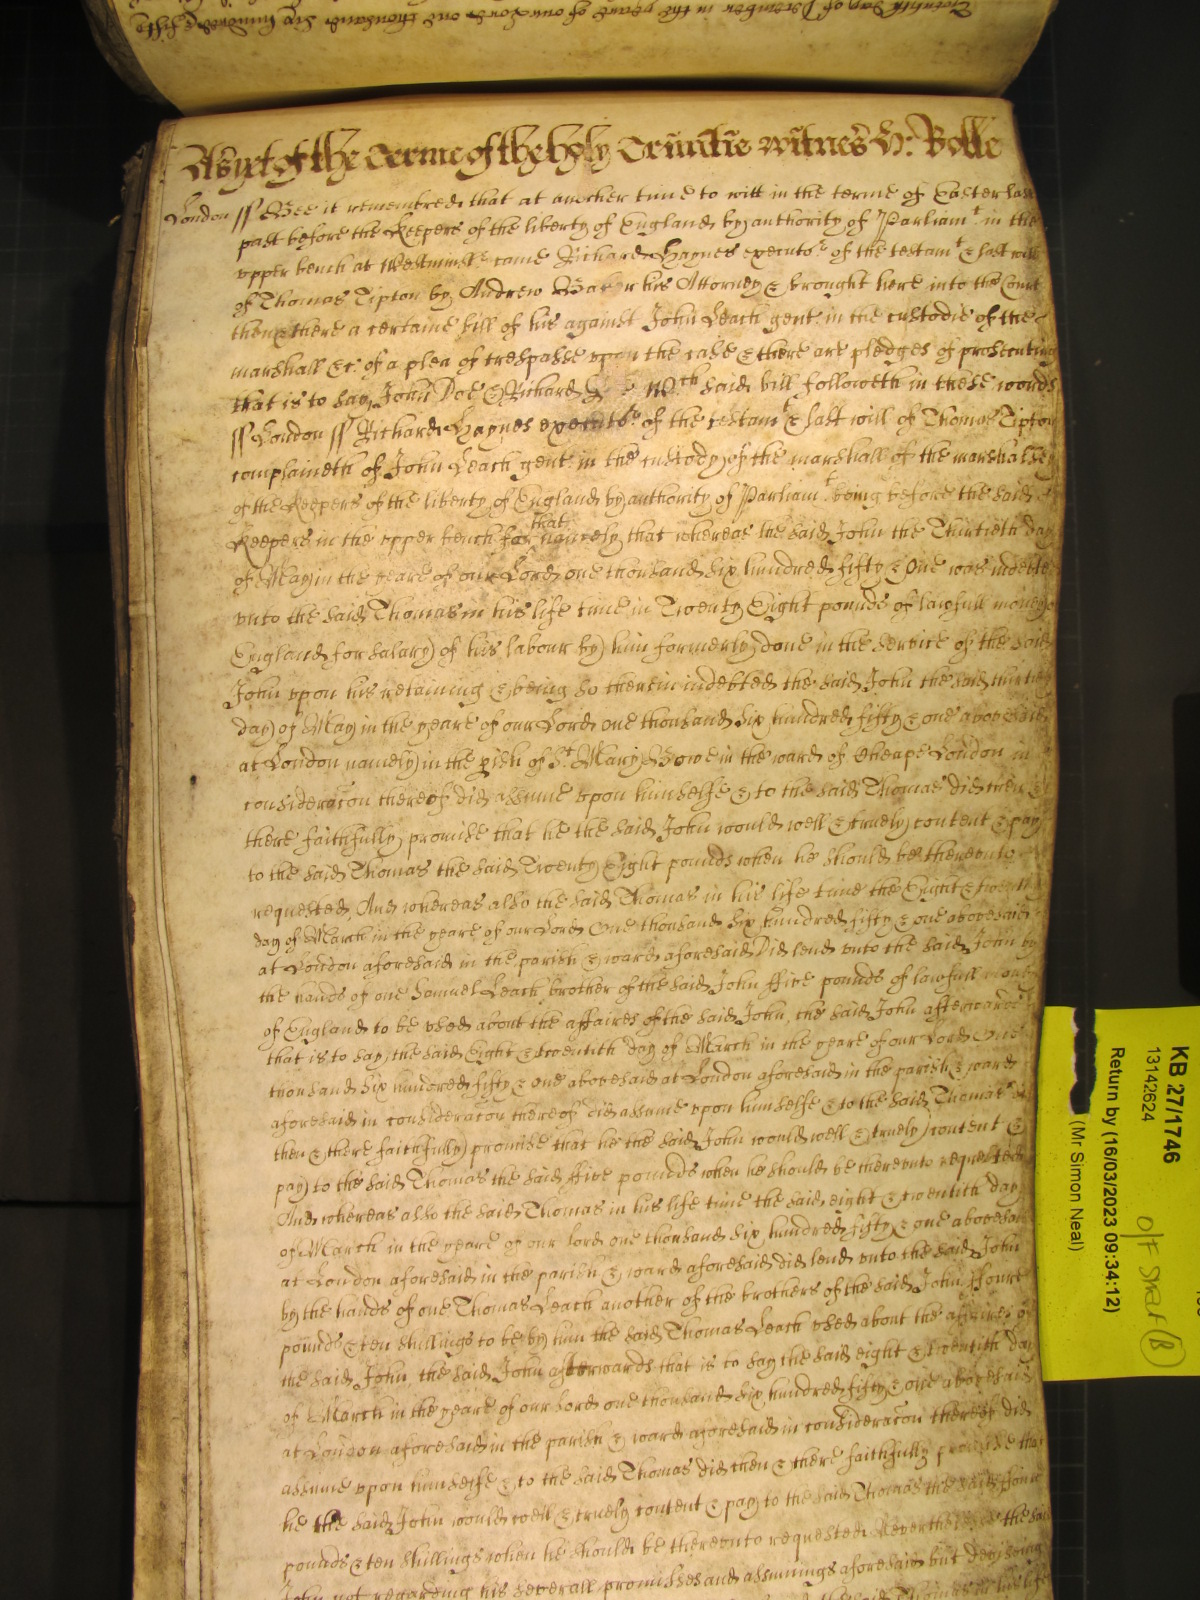 Twentith day of December in the yeare of our Lord one thousand six hundred fiftie
As yet of the Terme of the holy Trinitie witnes H: Rolle
London ss Bee it remembred that at another time to witt in the terme of Easter last
past before the Keepers of the liberty of England by authority of Parliamt in the
upper bench at Westminstr came Richard Haynes executor of the testamt & last will
of Thomas Tipton by Andrew Baker his Attorney & brought here into the Court
then & there a certaine bill of his against John Leach gent in the custodie of the
marshall &c of a plea of trespasse upon the case & there are pledges of prosecuting
that is to say John Doe & Richard Wch said bill followeth in these words
ss London ss Richard Haynes executor of the testamt & last will of Thomas Tipton
complaineth of John Leach gent in the custody of the marshall of the marshalsey
of the Keepers of the liberty of England by authority of Parliamt being before the said
Keepers in the upper bench for that namely that whereas the said John the Thirtieth day
of May in the yeare of our Lord one thousand six hundred fifty & One was indebted
unto the said Thomas in his life time in Twenty Eight pounds of lawfull money of
England for salary of his labour by him formerly done in the service of the said
John upon his retaining & being so therein indebted the said John the said thirtieth
day of May in the yeare of our Lord one thousand six hundred fifty & one abovesaid
at London namely in the pish of St Mary Bowe in the ward of Cheape London in
consideracon thereof did assume upon himselfe & to the said Thomas did then &
there faithfully promise that he the said John would well & truely content & pay
to the said Thomas the said Twenty Eight pounds when he should be thereunto
requested And whereas also the said Thomas in his life time the Eight & twentith
day of March in the yeare of our Lord One thousand six hundred fifty & one abovesaid
at London aforesaid in the parish & ward aforesaid Did lend unto the said John by
the hands of one Samuel Leach brother of the said John ffive pounds of lawfull money
of England to be used about the affaires of the said John, the said John afterwards
that is to say the said Eight & twentith day of March in the yeare of our Lord One
thousand six hundred fifty & one abovesaid at London aforesaid in the parish & ward
aforesaid in consideracon thereof did assume upon himselfe & to the said Thomas did
then & there faithfully promise that he the said John would well & truely content &
pay to the said Thomas the said ffive pounds when he should be thereunto requested
And whereas also the said Thomas in his life time the said eight & twentith day
of March in the yeare of our lord one thousand six hundred fifty & one abovesaid
at London aforesaid in the parish & ward aforesaid did lend unto the said John
by the hands of one Thomas Leach another of the brothers of the said John ffoure
pounds & ten shillings to be by him the said Thomas Leach used about the affaires of
the said John, the said John afterwards that is to say the said eight & twentith day
of March in the yeare of our lord one thousand six hundred fifty & one abovesaid
at London aforesaid in the parish & ward aforesaid in consideracon thereof did
assume upon himselfe & to the said Thomas did then & there faithfully promise that
he the said John would well & truely content & pay to the said Thomas the said ffoure
pounds & ten shillings when he should be thereunto requested Neverthelesse the said
John not regarding his severall promisses and assumings aforesaid but devising
the said Thomas in his life
KB 27/1746
13142624
Return by (16/03/2023 09:34:12)
(Mr Simon Neal)
O/F Shelf B